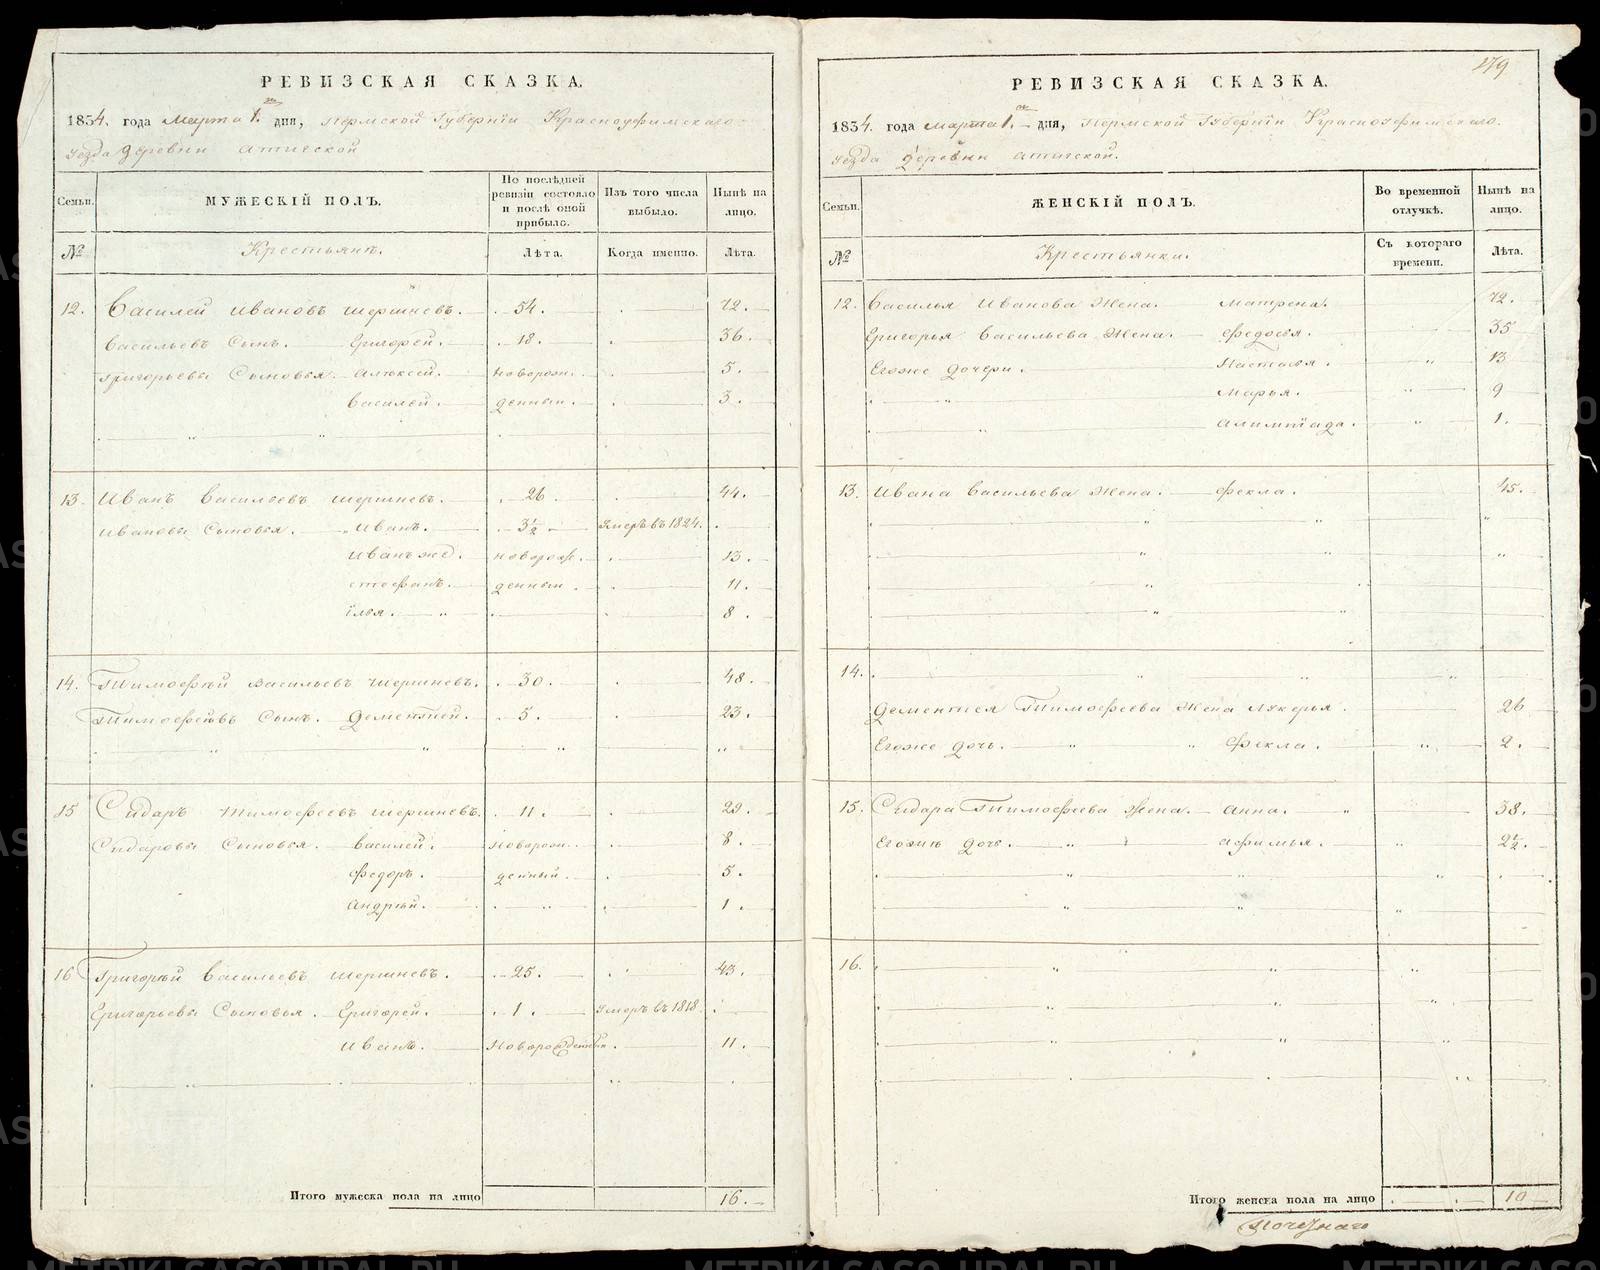 РЕВИЗСКАЯ СКАЗКА.
1834. года Марта 1. дня, Пермской Губернїи Красноуфимскаго
уезда деревни Атигской
Семьи.
МУЖЕСКІЙ ПОЛЪ.
По послѣдней ревизіи состояло и послѣ оной прибыло.
Изъ того числа выбыло.
Нынѣ на лицо.
№
Крестьянъ.
Лѣта.
Когда именно.
Лѣта.
12. Василей Ивановъ Шершневъ. 54. 72.
Васильевъ Сынъ. Григорей. 18. 36.
Григорьевы Сыновья. Алексей. новорож- 5.
Василей. денныи. 3.
13. Иванъ Васильевъ Шершневъ. 26 44.
Ивановы Сыновья. Иванъ. 3½ Умеръ въ 1824.
Иванъ же. новорож. 13.
Стефанъ. денныи. 11.
Їлья. 8.
14. Тимофѣй Васильевъ Шершневъ. 30. 48.
Тимофѣевъ Сынъ. Дементїей. 5. 23.
15 Сидаръ Тимофеевъ Шершневъ. 11. 29.
Сидаровы Сыновья. Василей. новорож- 8.
Федоръ. денный. 5.
Андрѣй. 1.
16 Григорѣй Васильевъ Шершневъ. 25. 43.
Григорьевы Сыновья. Григорей. 1. Умеръ въ 1818.
Иванъ. Новорожденный. 11.
Итого мужеска пола на лицо 16.
179
РЕВИЗСКАЯ СКАЗКА.
1834. года Марта 1. дня, Пермской Губернїи Красноуфимскаго.
уезда деревни Атигской.
Семьи.
ЖЕНСКІЙ ПОЛЪ.
Во временной отлучкѣ.
Нынѣ на лицо.
№
Крестьянки.
Съ котораго времени.
Лѣта.
12. Василья Иванова Жена. Матрена. 72.
Григорья Васильева Жена. Федосья. 35
Егоже дочери. Настасья. 13
Марья. 9
Алимпїада. 1.
13. Ивана Васильева Жена. Фекла. 45.
14.
Дементия Тимофеева Жена Лукерья. 26
Егоже дочь. Фекла. 2.
15. Сидара Тимофеева Жена. Анна. 38.
Егоже дочь. Афимья. 2½.
16.
Итого женска пола на лицо 10